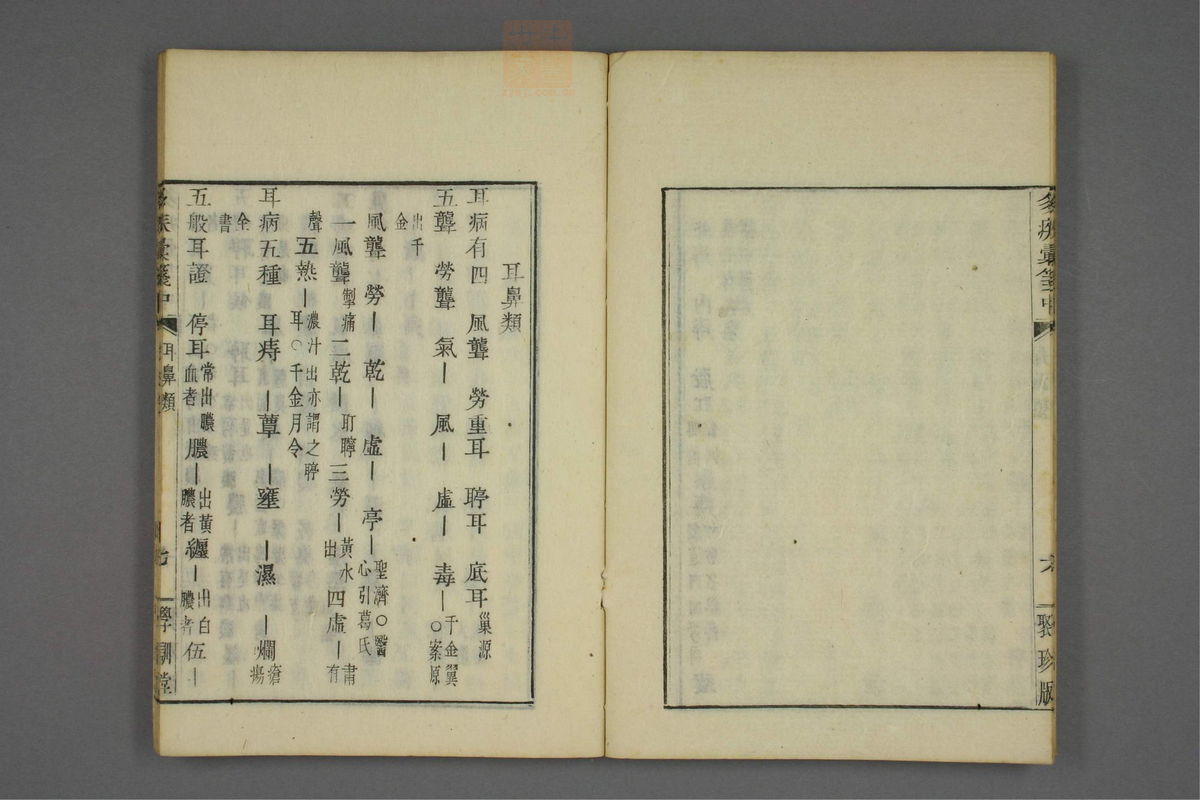 彙箋中
六
聚珍版
耳鼻類
耳病有四 風聾 勞重耳 聤耳 底耳 巢源
五聾 勞聾 氣｜ 風｜ 虛｜ 毒｜ 千金翼○案原出千金
風聾 勞｜ 乾｜ 虛｜ 亭｜ 聖濟○醫心引葛氏
一風聾 掣痛 二乾｜ 耵聹 三勞｜ 黃水出 四虛｜ 肅有聲
五熱｜ 濃汁出亦謂之聤耳○千金月令
耳病五種 耳痔 ｜蕈 ｜壅 ｜濕 ｜爛 瘡瘍全書
五般耳證｜停耳 常出膿血者 膿｜ 出黃膿者 纏｜ 出白膿者 伍｜
彙箋中
耳鼻類
七
學訓堂